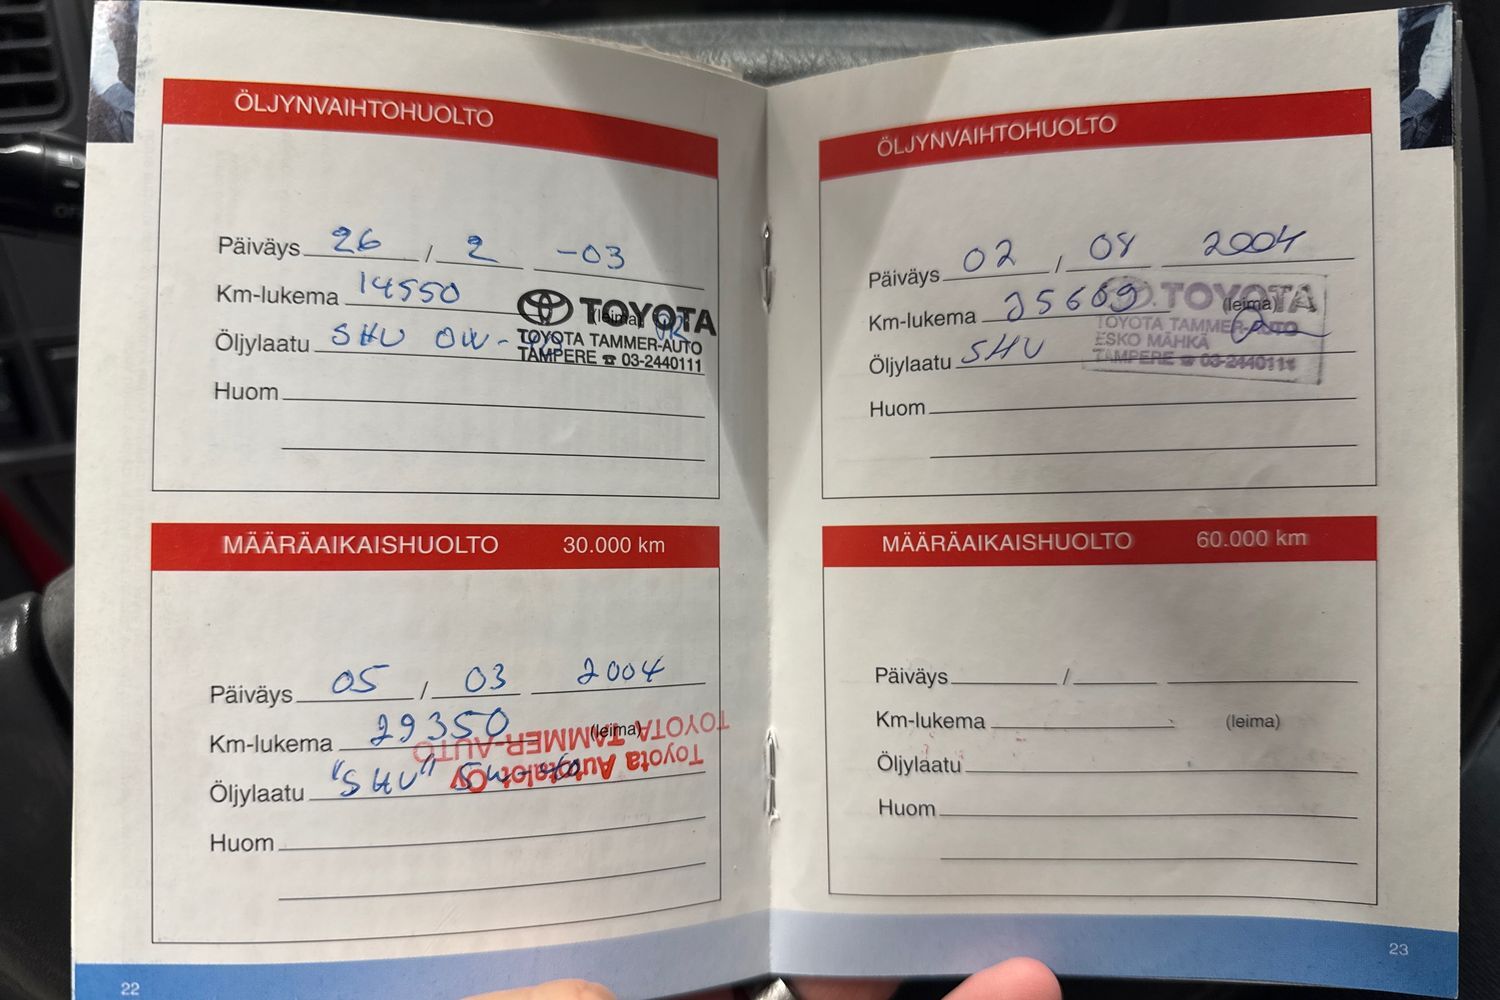 ÖLJYNVAIHTOHUOLTO
Päiväys 26 / 2 -03
Km-lukema 14550 (leima)
Öljylaatu SHU 0W-
Huom
TOYOTA
TOYOTA TAMMER-AUTO
TAMPERE ☎ 03-2440111
MÄÄRÄAIKAISHUOLTO 30.000 km
Päiväys 05 / 03 2004
Km-lukema 29350 (leima)
Öljylaatu "SHU" 5W-40
Huom
TOYOTA
TAMMER-AUTO
Toyota Autotalot Oy
22
ÖLJYNVAIHTOHUOLTO
Päiväys 02 / 08 2004
Km-lukema 35609 (leima)
Öljylaatu SHU
Huom
TOYOTA
TOYOTA TAMMER-AUTO
ESKO MÄHKÄ
TAMPERE ☎ 03-2440111
MÄÄRÄAIKAISHUOLTO 60.000 km
Päiväys /
Km-lukema (leima)
Öljylaatu
Huom
23